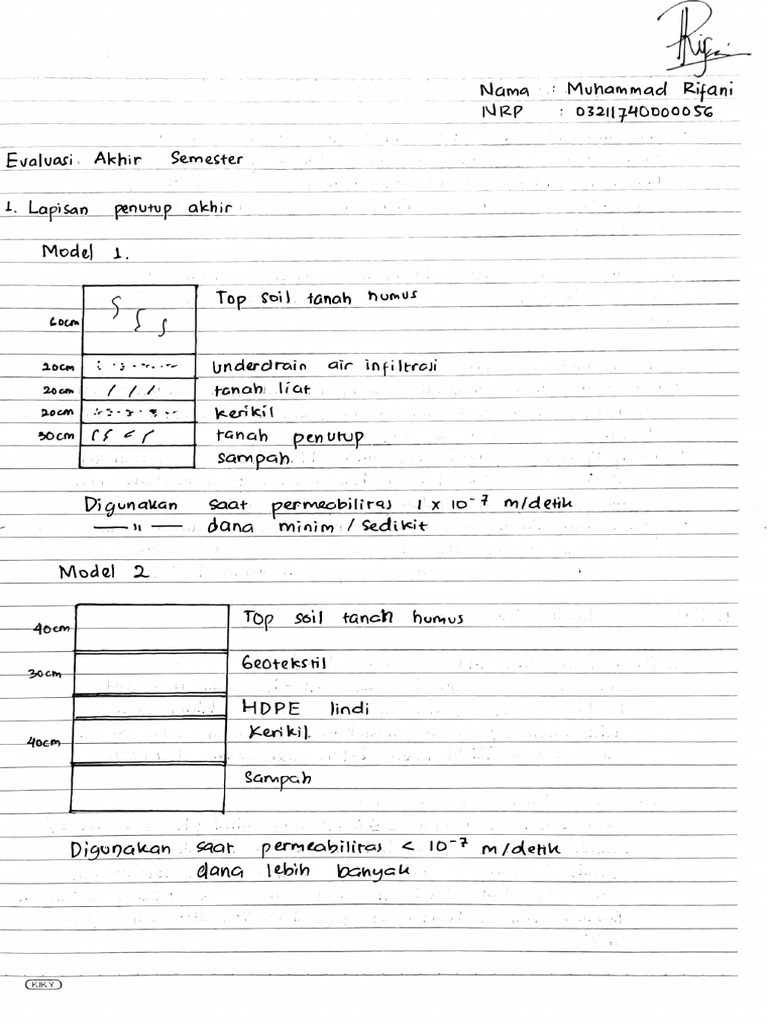 Rifani
Nama : Muhammad Rifani
NRP : 03211740000056
Evaluasi Akhir Semester
1. Lapisan penutup akhir
Model 1.
60cm Top soil tanah humus
20cm underdrain air infiltrasi
20cm tanah liat
20cm kerikil
30cm tanah penutup
sampah
Digunakan saat permeabilitas 1 x 10⁻⁷ m/detik
—— " —— dana minim / sedikit
Model 2
40cm Top soil tanah humus
30cm Geotekstil
HDPE lindi
40cm Kerikil
Sampah
Digunakan saat permeabilitas < 10⁻⁷ m/detik
dana lebih banyak
KIKY